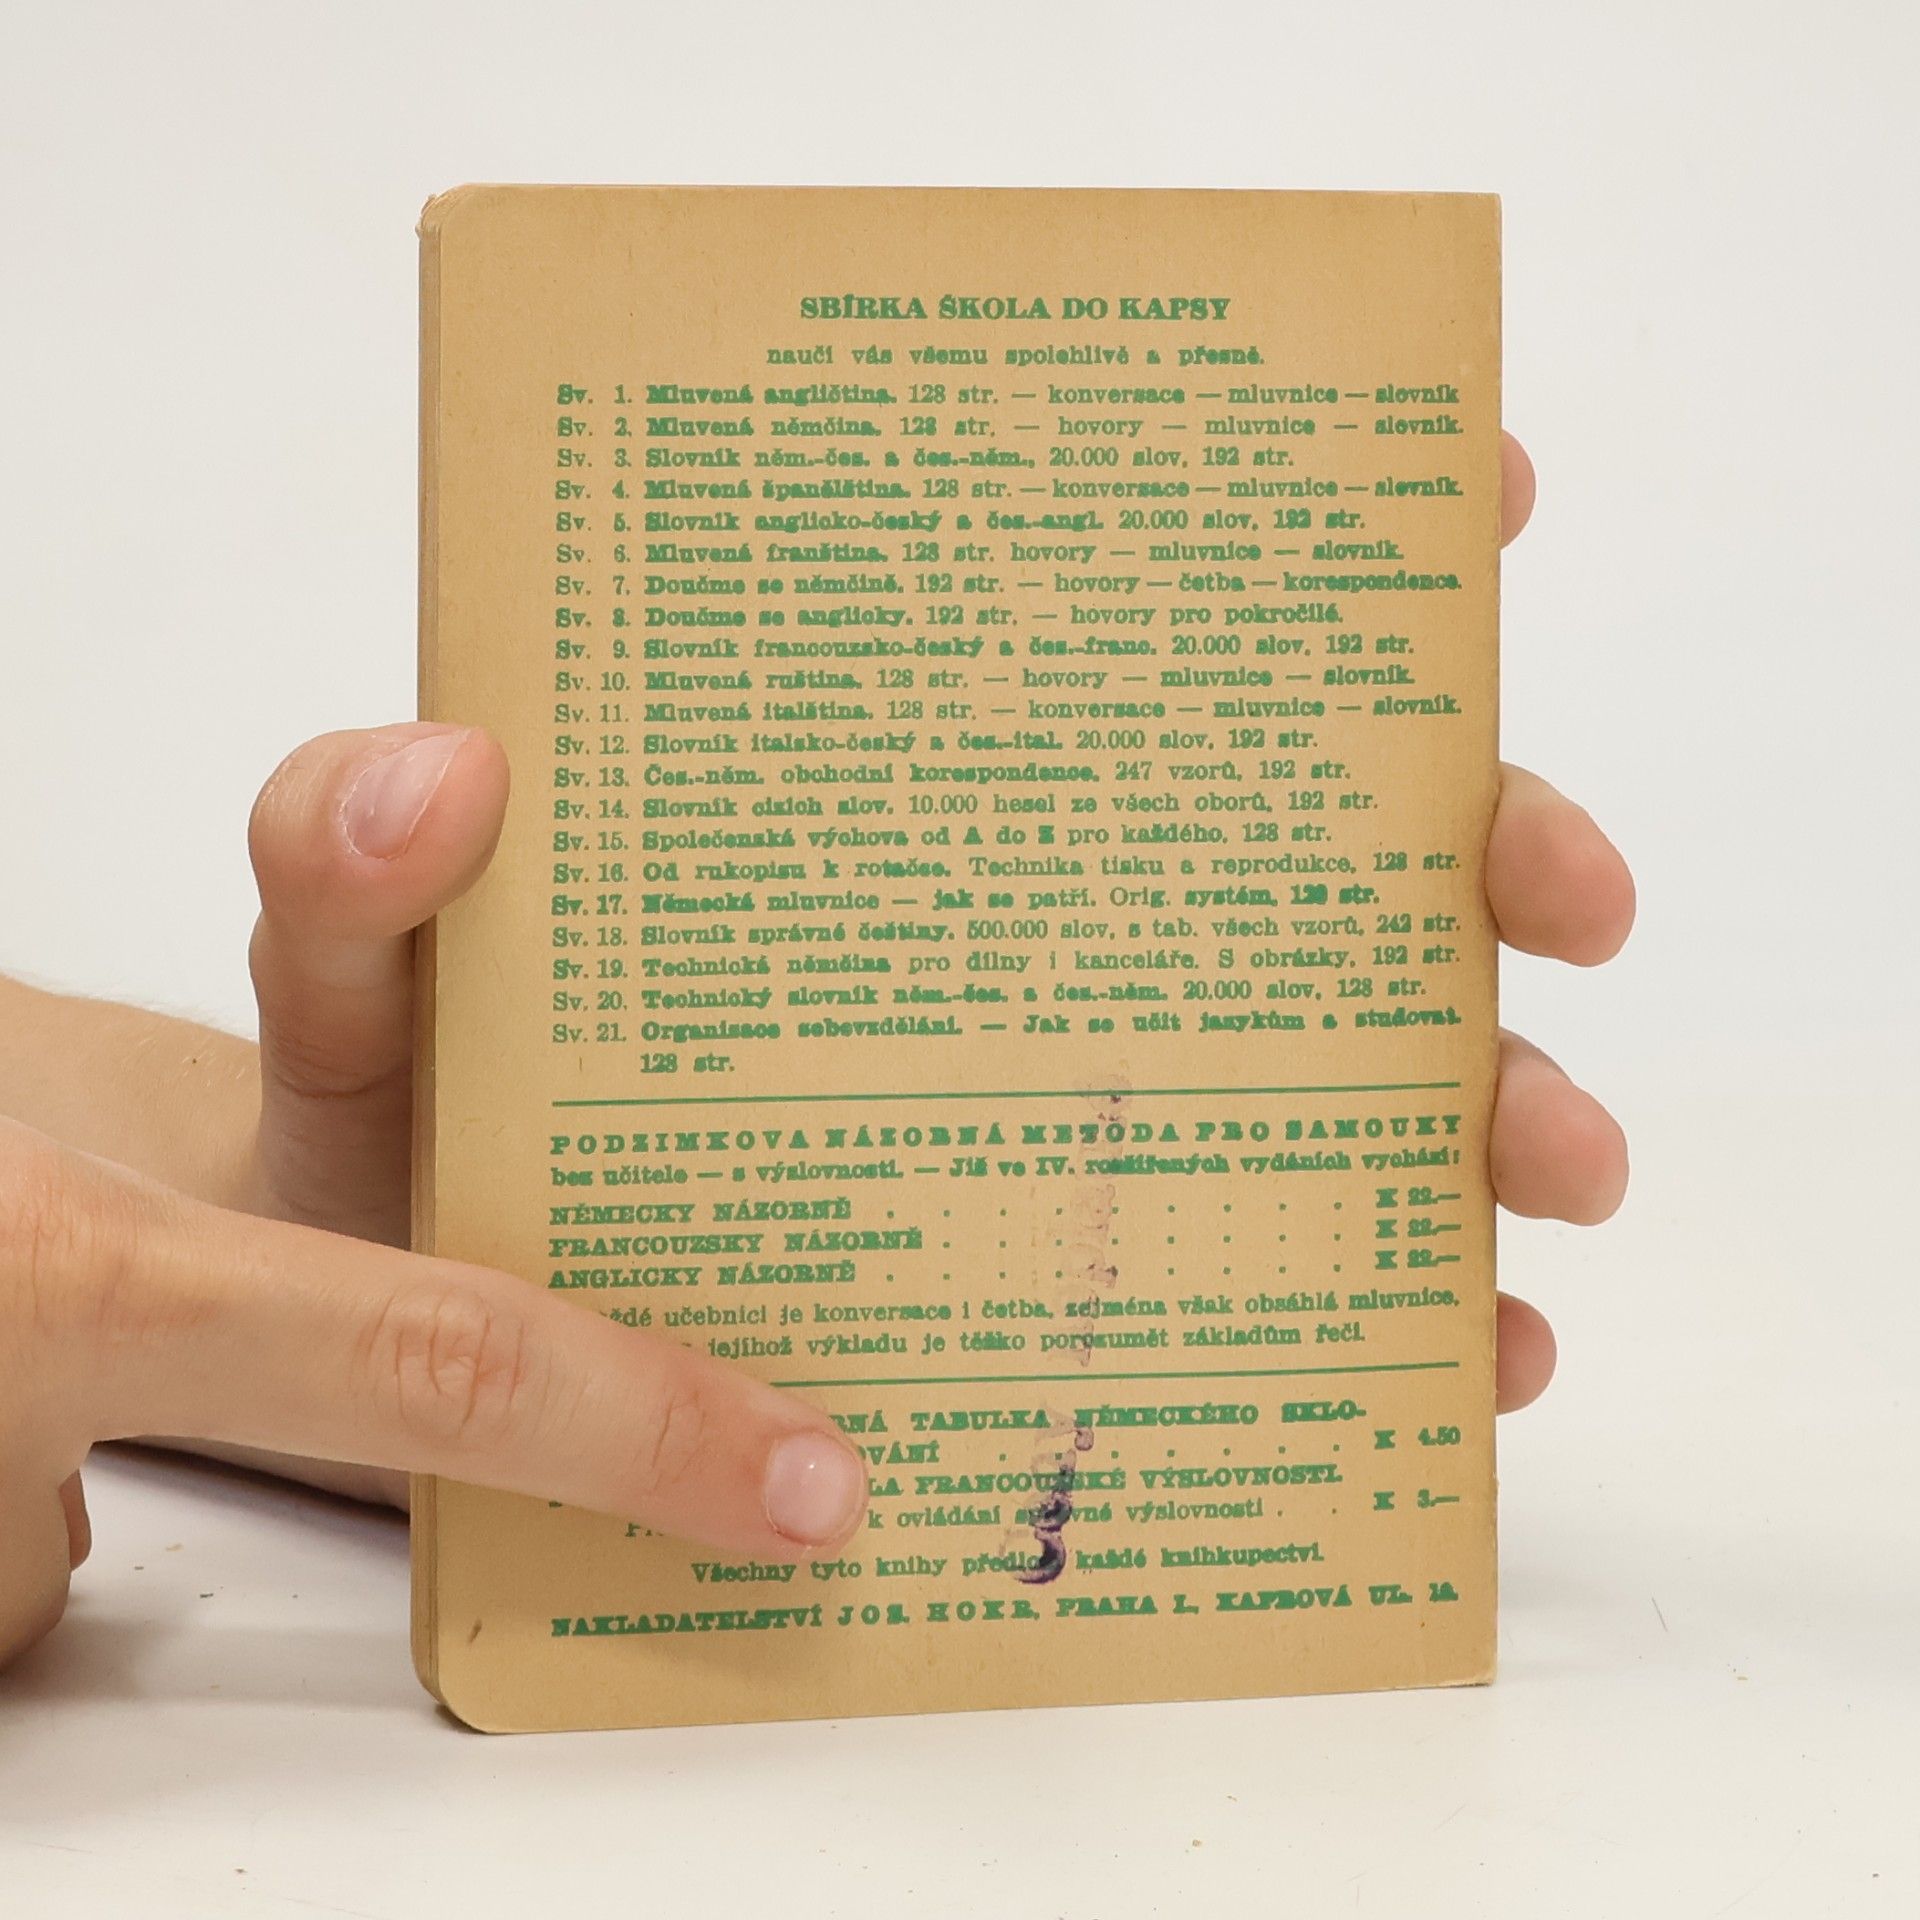 SBÍRKA ŠKOLA DO KAPSY
naučí vás všemu spolehlivě a přesně.
Sv. 1. Mluvená angličtina. 128 str. — konversace — mluvnice — slovník
Sv. 2. Mluvená němčina. 128 str. — hovory — mluvnice — slovník.
Sv. 3. Slovník něm.-čes. a čes.-něm., 20.000 slov, 192 str.
Sv. 4. Mluvená španělština. 128 str. — konversace — mluvnice — slovník.
Sv. 5. Slovník anglicko-český a čes.-angl. 20.000 slov, 192 str.
Sv. 6. Mluvená franština. 128 str. hovory — mluvnice — slovník.
Sv. 7. Doučme se němčině. 192 str. — hovory — četba — korespondence.
Sv. 8. Doučme se anglicky. 192 str. — hovory pro pokročilé.
Sv. 9. Slovník francouzsko-český a čes.-franc. 20.000 slov, 192 str.
Sv. 10. Mluvená ruština. 128 str. — hovory — mluvnice — slovník.
Sv. 11. Mluvená italština. 128 str. — konversace — mluvnice — slovník.
Sv. 12. Slovník italsko-český a čes.-ital. 20.000 slov, 192 str.
Sv. 13. Čes.-něm. obchodní korespondence. 247 vzorů, 192 str.
Sv. 14. Slovník cizích slov. 10.000 hesel ze všech oborů, 192 str.
Sv. 15. Společenská výchova od A do Z pro každého, 128 str.
Sv. 16. Od rukopisu k rotačce. Technika tisku a reprodukce, 128 str.
Sv. 17. Německá mluvnice — jak se patří. Orig. systém, str.
Sv. 18. Slovník správné češtiny. 500.000 slov, s tab. všech vzorů, 242 str.
Sv. 19. Technická němčina pro dílny i kanceláře. S obrázky, 192 str.
Sv. 20. Technický slovník něm.-čes. a čes.-něm. 20.000 slov, 128 str.
Sv. 21. Organisace sebevzdělání. — Jak se učit jazykům a studovat.
128 str.
PODZIMKOVA NÁZORNÁ METODA PRO SAMOUKY
bez učitele — s výslovností. — Již ve IV. rozšířených vydáních vychází:
NĚMECKY NÁZORNĚ . . . . . . . . . K 22.—
FRANCOUZSKY NÁZORNĚ . . . . . . . . K 22.—
ANGLICKY NÁZORNĚ . . . . . . . . . K 22.—
učebnici je konversace i četba, zejména však obsáhlá mluvnice,
jejíhož výkladu je těžko porozumět základům řeči.
TABULKA NĚMECKÉHO SKLO-
. . . . . . . K 4.50
FRANCOUZSKÉ VÝSLOVNOSTI.
k ovládání správné výslovnosti . . K 3.—
Všechny tyto knihy předloží každé knihkupectví.
NAKLADATELSTVÍ JOS. HOKR, PRAHA I., KAPROVÁ UL.